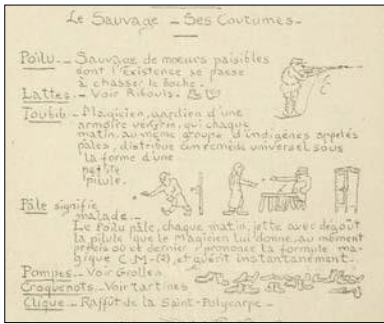 Le Sauvage - Ses Coutumes -
Poilu. - Sauvage de mœurs paisibles
dont l'existence se passe
à chasser le boche. -
Lattes. - Voir Ribouis.
Toubib - Magicien, gardien d'une
armoire vekrin, qui chaque
matin, au même groupe d'indigènes appelés
pales, distribue un remède universel sous
la forme d'une
petite
pilule.
Pâle signifie
malade. -
Le Poilu pâle, chaque matin, jette avec dégoût
la pilule que le Magicien lui donne, au moment
précis où ce dernier prononce la formule ma-
gique C.M-(2), et guérit instantanément. -
Pompes. - Voir Grollen
Croquenots. - Voir tartines
Clique. - Raffût de la Saint-Polycarpe -